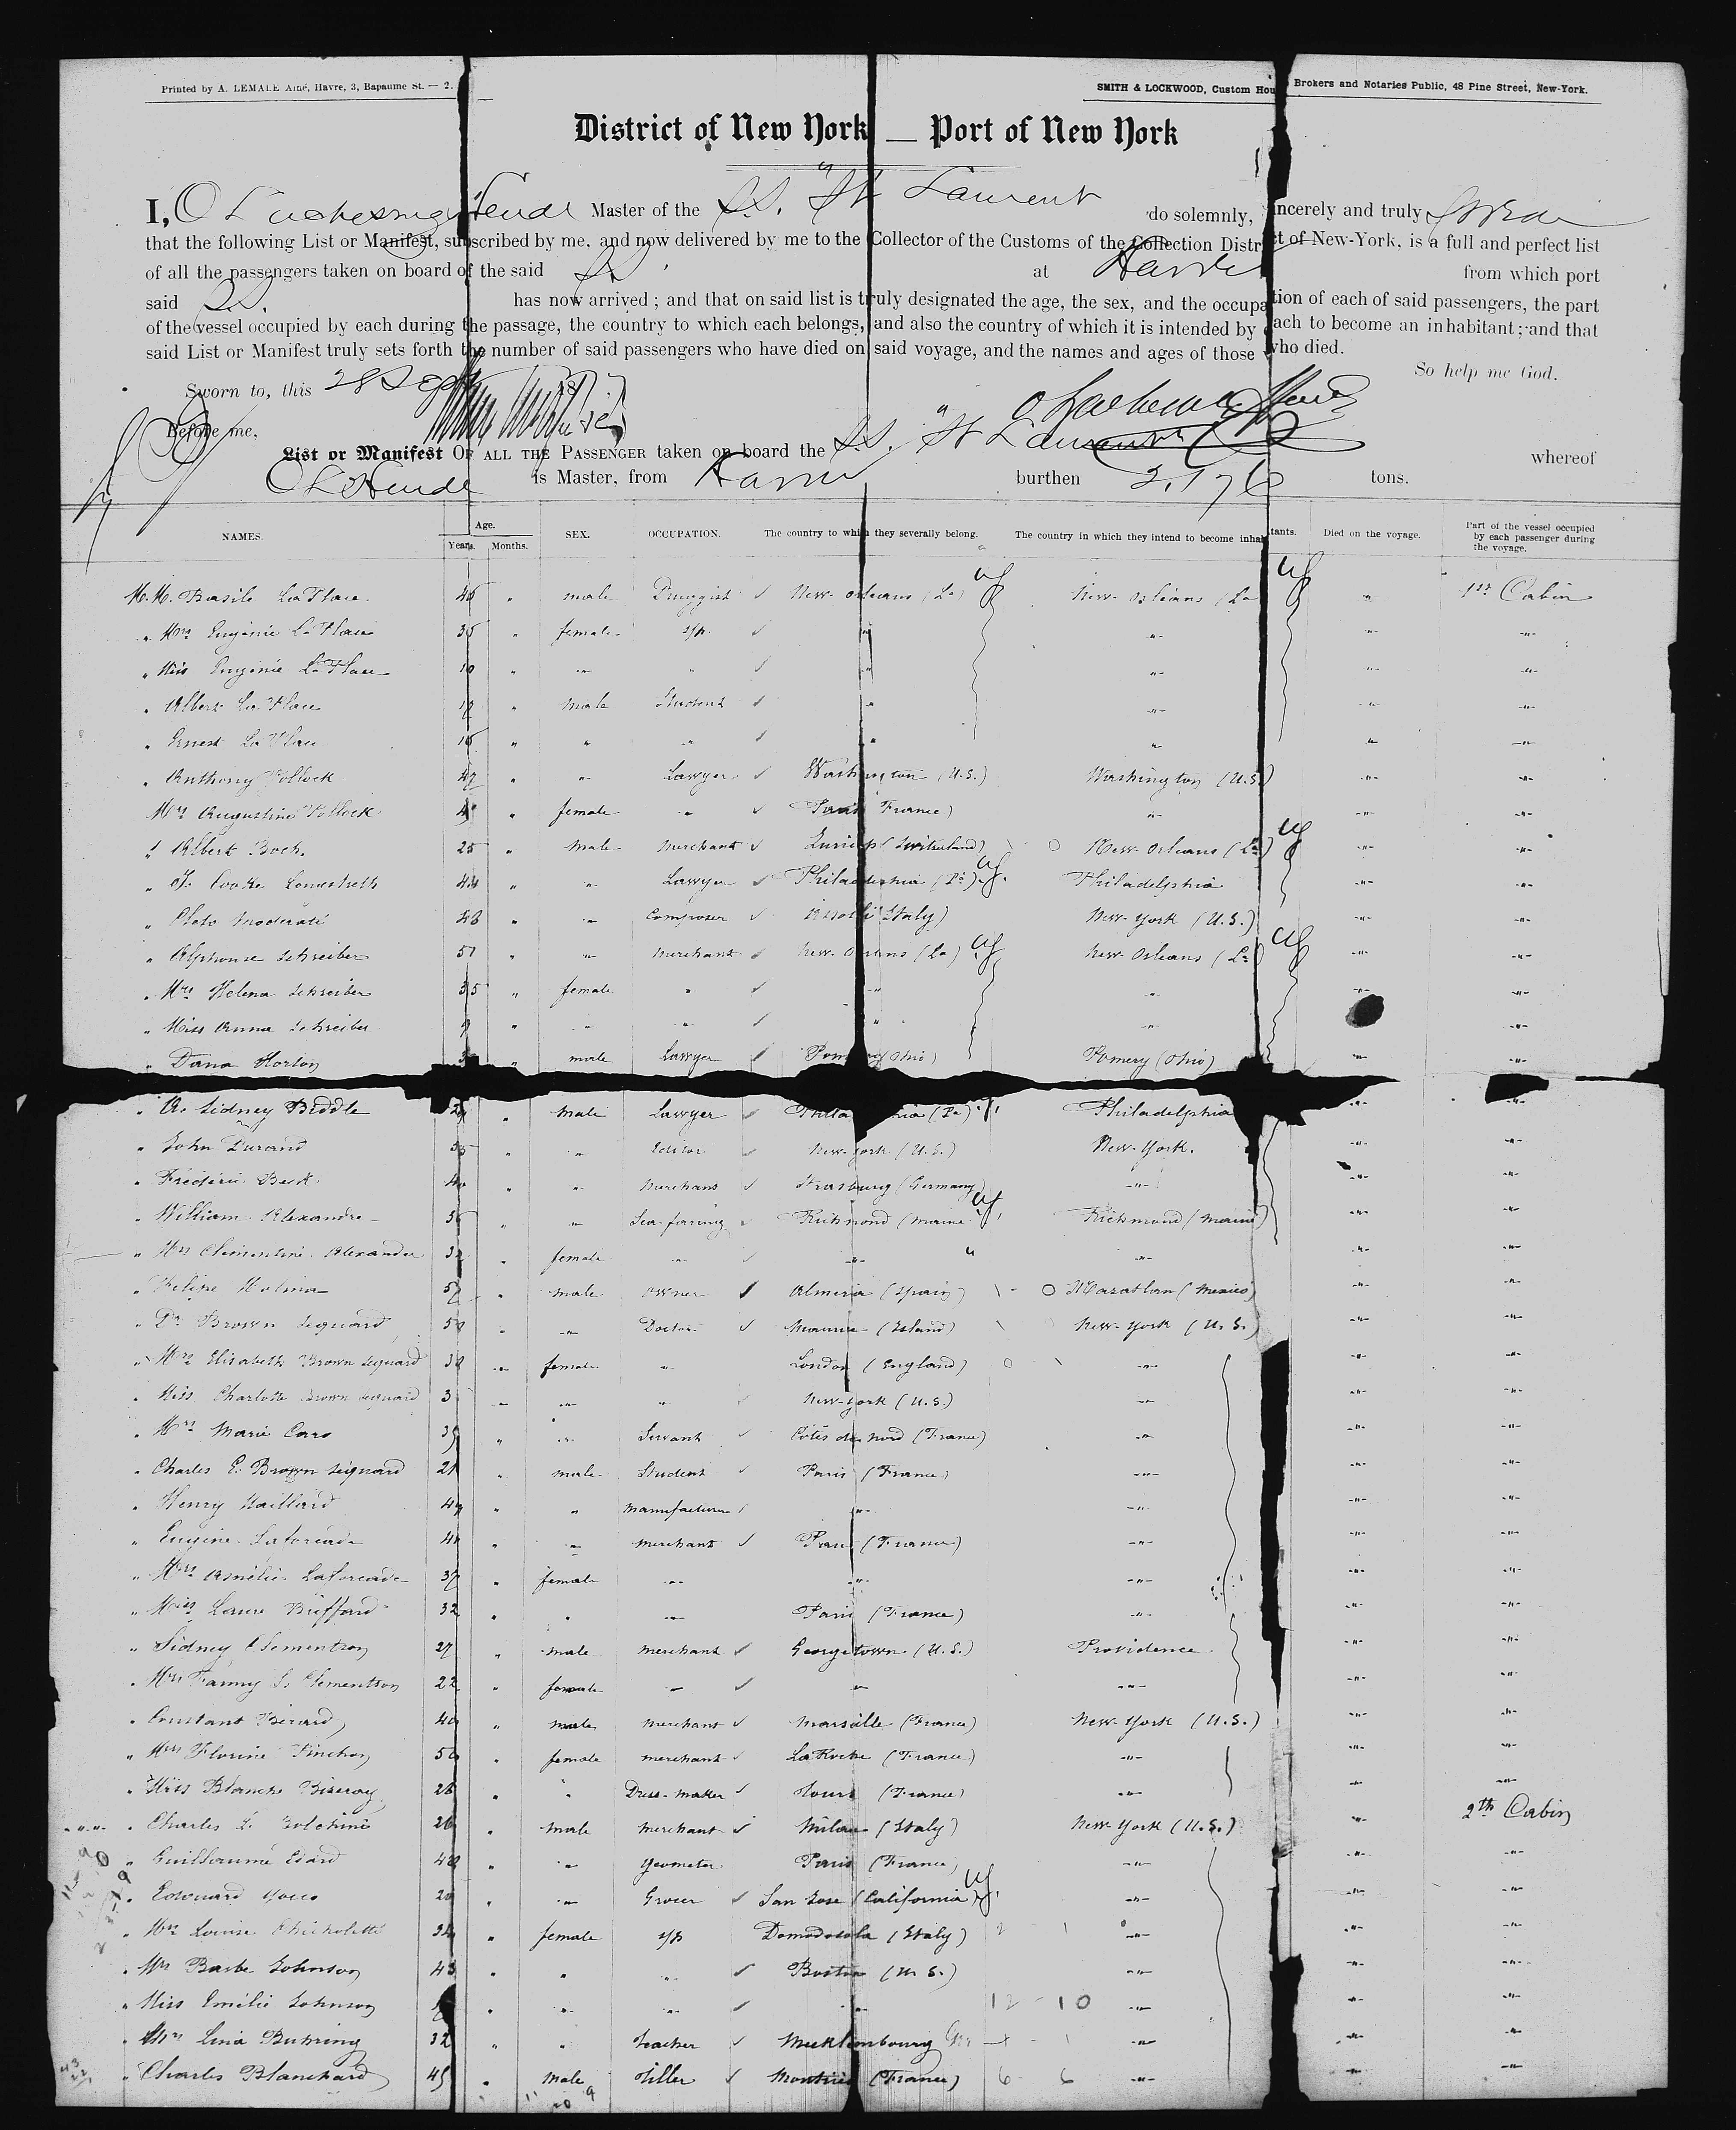 Printed by A. LEMALE Aîné, Havre, 3, Bapaume St. — 2.
SMITH & LOCKWOOD, Custom Hou Brokers and Notaries Public, 48 Pine Street, New-York.
District of New York — Port of New York
I, Master of the S.S. "St Laurent do solemnly, incerely and truly swear
that the following List or Manifest, subscribed by me, and now delivered by me to the Collector of the Customs of the Collection District of New-York, is a full and perfect list
of all the passengers taken on board of the said S.S. at Havre from which port
said S.S. has now arrived ; and that on said list is truly designated the age, the sex, and the occupation of each of said passengers, the part
of the vessel occupied by each during the passage, the country to which each belongs, and also the country of which it is intended by each to become an inhabitant ; and that
said List or Manifest truly sets forth the number of said passengers who have died on said voyage, and the names and ages of those who died.
So help me God.
Sworn to, this 28 Sept 18
Before me,
List or Manifest OF ALL THE PASSENGER taken on board the S.S. "St Laurent" whereof
is Master, from Havre burthen tons.
NAMES. Age. SEX. OCCUPATION. The country to which they severally belong. The country in which they intend to become inhabitants. Died on the voyage. Part of the vessel occupied by each passenger during the voyage.
Years. Months.
M.M. Basile La Place 46 " male Druggist ✓ New-Orleans (La) New-Orleans (La " 1st Cabin
" Mrs Eugénie La Place 35 " female ✓ " " " "
" Miss Eugénie La Place 10 " " " ✓ " " " "
" Albert La Place " male Student ✓ " " " "
" Ernest La Place 16 " " " ✓ " " " "
" Anthony Pollock 47 " " Lawyer ✓ Washington (U.S.) Washington (U.S.) " "
Mrs Augustine Pollock " female " ✓ Paris (France) " " "
" Albert Boch 25 " male merchant ✓ Zurich (Switzerland) New-Orleans (La) " "
" J. Cooke Longstreth 44 " " Lawyer ✓ Philadelphia (Pa) Philadelphia " "
" moderati 46 " " Composer ✓ (Italy) New-York (U.S.) " "
" Alphonse Schreiber 51 " " merchant ✓ New-Orleans (La) New Orleans (La) " "
" Mrs Helena Schreiber 35 " female " ✓ " " " "
" Miss Anna Schreiber 9 " " " ✓ " " " "
" Dana Horton " male Lawyer ✓ Pomery (Ohio) Pomery (Ohio) " "
" A. Sidney Biddle " male Lawyer ✓ Philadelphia (Pa) Philadelphia " "
" John Durand 55 " " Editor ✓ New-York (U.S.) New-York. " "
" Frederic Beck " " merchant ✓ Strasburg (Germany) " " "
" William Alexandre 56 " " Sea-faring ✓ Richmond (Maine Richmond (Maine) " "
" Mrs Clementine Alexander " female " ✓ " " " "
" Felipe Molina 57 " male owner ✓ Almeria (Spain) Mazatlan (Mexico) " "
" Dr Brown Sequard 58 " " Doctor ✓ Maurice (Island) New-York (U.S.) " "
" Mrs Elisabeth Brown Sequard 38 " female " London (England) " " "
" Miss Charlotte Brown Sequard 3 " " " ✓ New-York (U.S.) " " "
" Mrs Marie Caro 39 " " Servant ✓ Côtes du nord (France) " " "
" Charles E. Brown Sequard 21 " male Student ✓ Paris (France) " " "
" Henry Maillard 49 " " manufacturer ✓ " " " "
" Eugene Laforcade " " merchant ✓ Pau (France) " " "
" Mrs Amélie Laforcade 37 " female " " " " "
" Miss Laure Buffard 32 " " " Paris (France) " " "
" Sidney Clementson 27 " male merchant ✓ Georgetown (U.S.) Providence " "
" Mrs Fanny S. Clementson 22 " female " ✓ " " " "
" Constant Bérard 40 " male merchant ✓ Marseille (France) New-York (U.S.) " "
" Mrs Florine Pinchon 50 " female merchant ✓ La Roche (France) " " "
" Miss Blanche 28 " " Dress-maker ✓ Tours (France) " " "
" Charles L. Bolchini 26 " male merchant ✓ Milan (Italy) New York (U.S.) " 2th Cabin
" Guillaume Edard 48 " " geometer Paris (France) " " "
" Edouard " " Grocer ✓ San Jose (California) " " "
" Mrs Louise 34 " female Domodosola (Italy) " " "
" Mrs Barbe Johnson 43 " " " ✓ Boston (U.S.) " " "
" Miss Emélie Johnson " " " ✓ " 12 - 10 " " "
" Mrs Lina Buhring 32 " " teacher ✓ Mecklembourg " " "
" Charles Blanchard 45 " male Tiller ✓ (France) 6 6 " " "